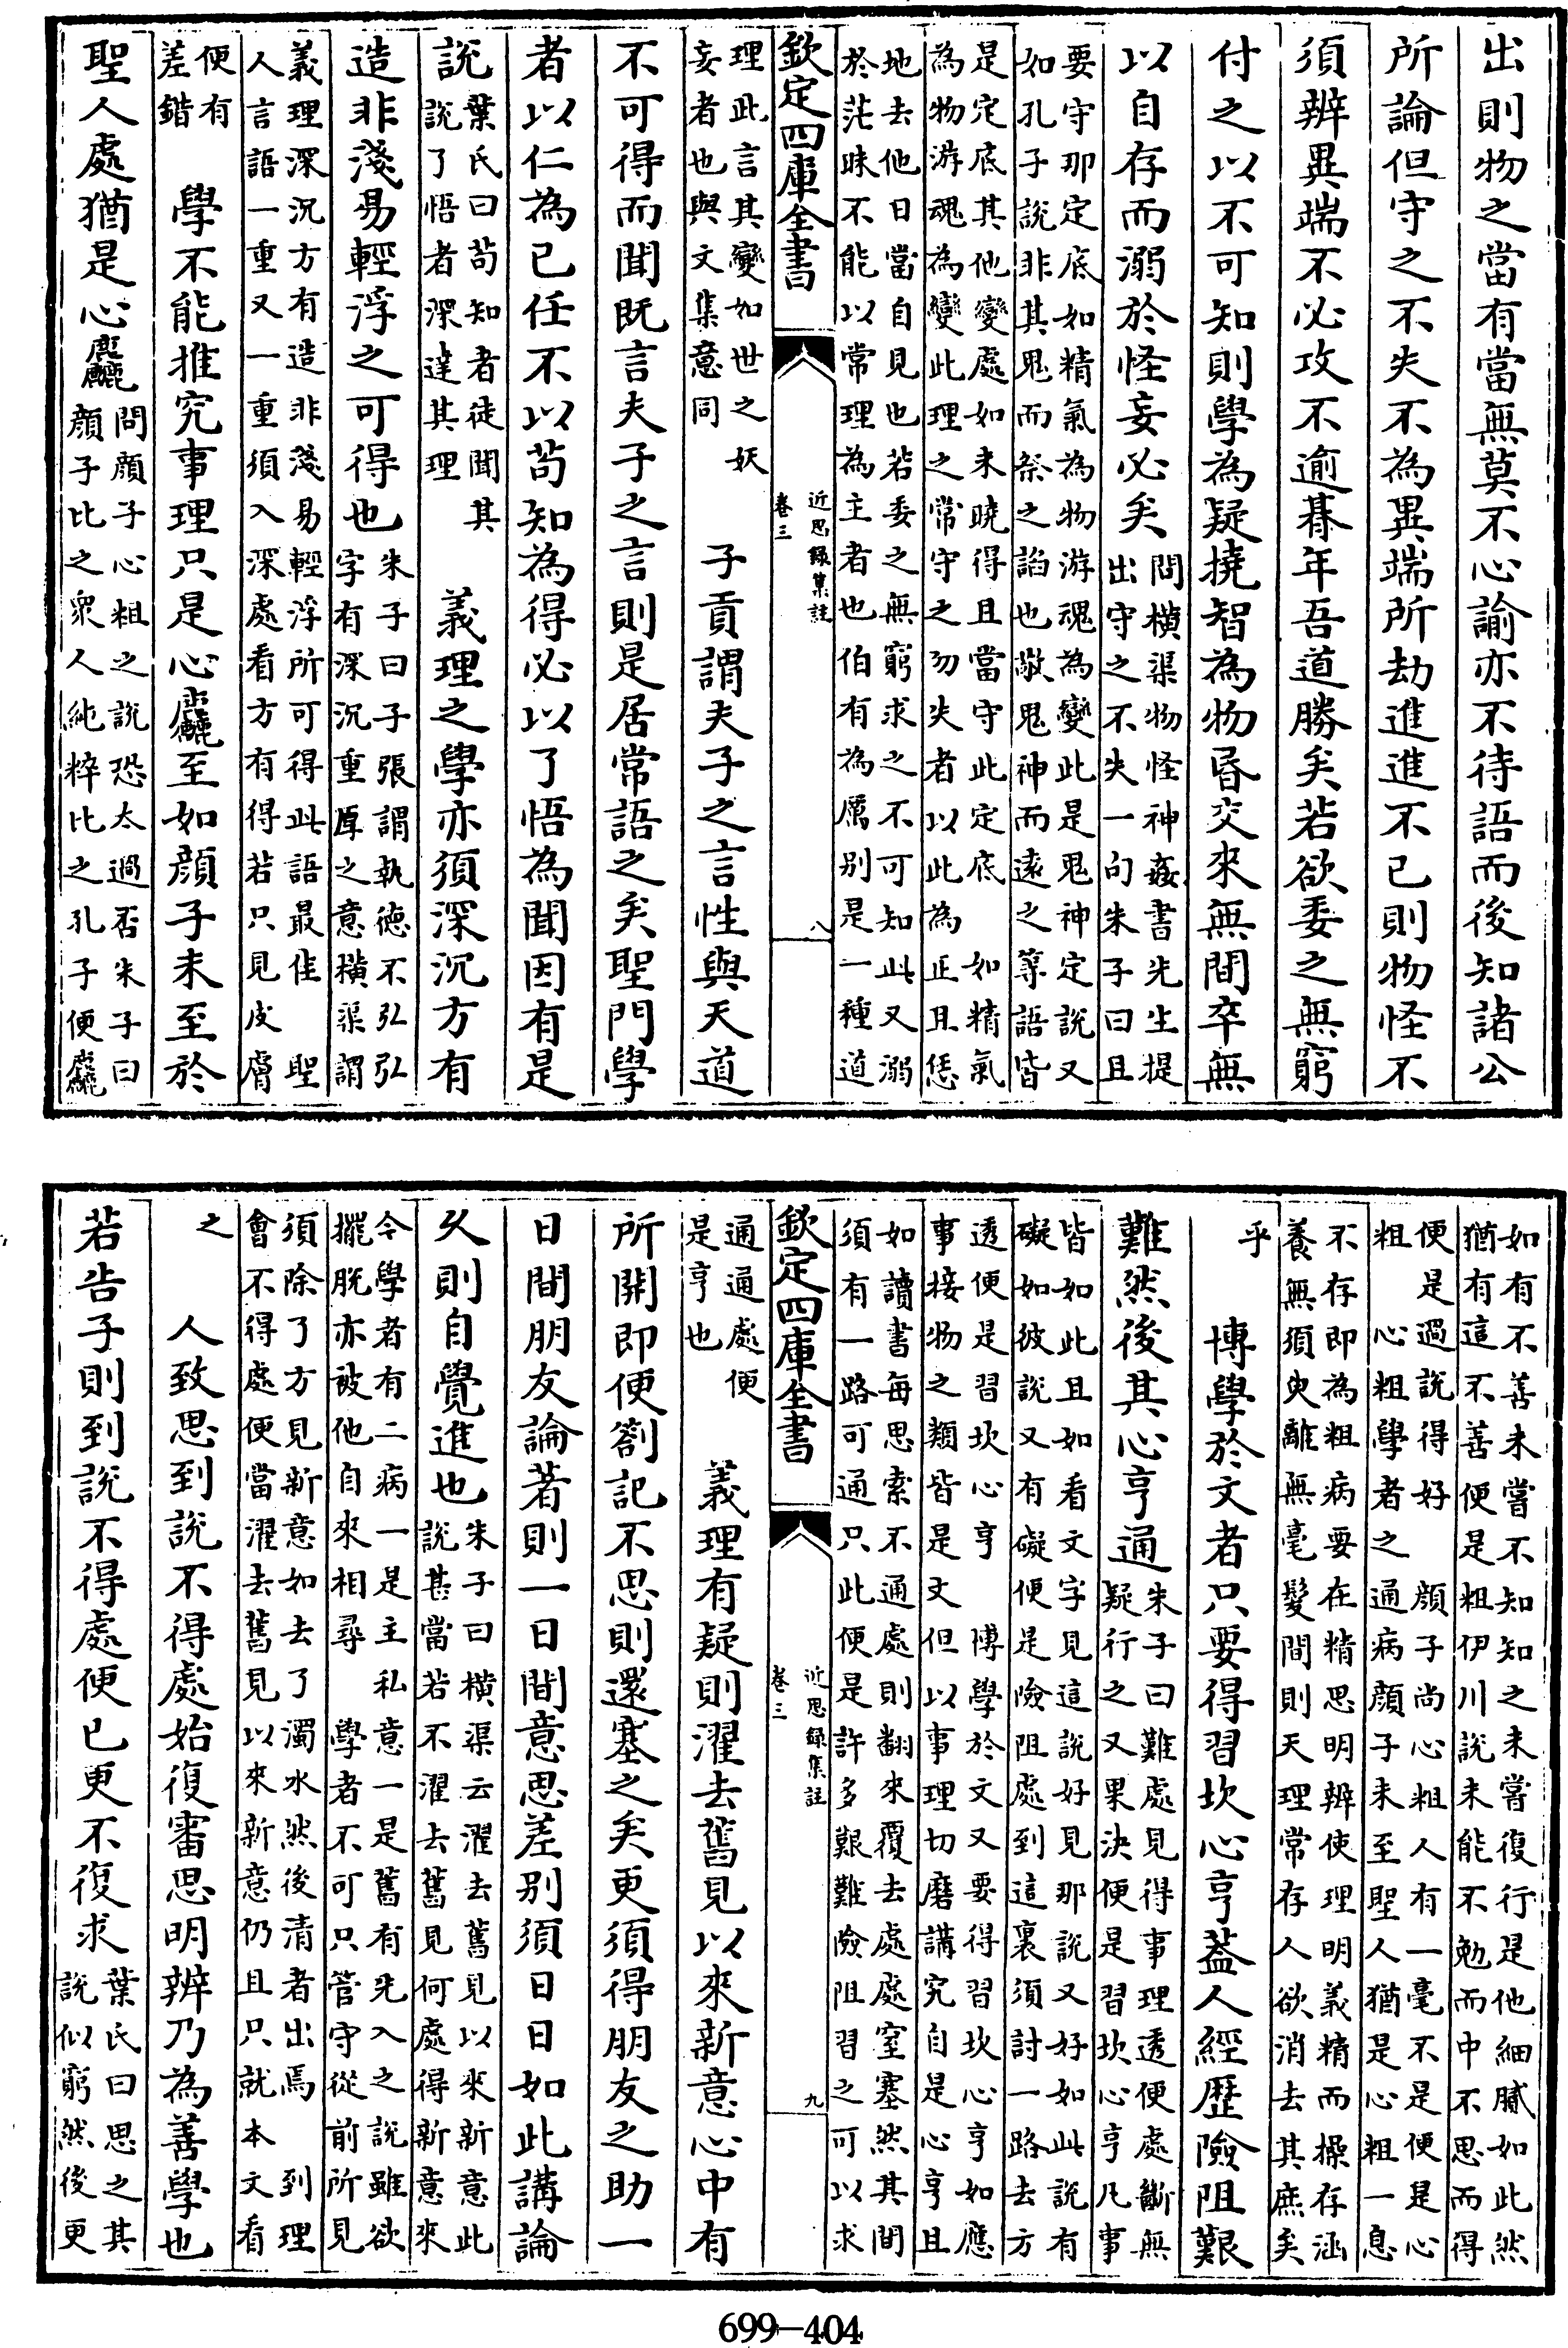 出則物之當有當無莫不心諭亦不待語而後知諸公
所論但守之不失不為異端所劫進進不已則物怪不
須辨異端不必攻不逾朞年吾道勝矣若欲委之無窮
付之以不可知則學為疑撓智為物昏交來無間卒無
以自存而溺於怪妄必矣
問橫渠物怪神姦書先生提
出守之不失一句朱子曰且
要守那定底如精氣為物游魂為變此是鬼神定說又
如孔子說非其鬼而祭之諂也敬鬼神而遠之等語皆
是定底其他變處如未曉得且當守此定底 如精氣
為物游魂為變此理之常守之勿失者以此為正且恁
地去他日當自見也若委之無窮求之不可知此又溺
於茫昧不能以常理為主者也伯有為厲别是一種道
欽定四庫全書
近思錄集註
卷三
八
理此言其變如世之妖
妄者也與文集意同
子貢謂夫子之言性與天道
不可得而聞既言夫子之言則是居常語之矣聖門學
者以仁為己任不以苟知為得必以了悟為聞因有是
說
葉氏曰苟知者徒聞其
說了悟者深達其理
義理之學亦須深沉方有
造非淺易輕浮之可得也
朱子曰子張謂執德不弘弘
字有深沉重厚之意橫渠謂
義理深沉方有造非淺易輕浮所可得此語最佳 聖
人言語一重又一重須入深處看方有得若只見皮膚
便有
差錯
學不能推究事理只是心麤至如顏子未至於
聖人處猶是心麤
問顏子心粗之說恐太過否朱子曰
顏子比之衆人純粹比之孔子便麤
如有不善未嘗不知知之未嘗復行是他細膩如此然
猶有這不善便是粗伊川說未能不勉而中不思而得
便是過說得好 顏子尚心粗人有一毫不是便是心
粗 心粗學者之通病顏子未至聖人猶是心粗一息
不存即為粗病要在精思明辨使理明義精而操存涵
養無須臾離無毫髮間則天理常存人欲消去其庶矣
乎
博學於文者只要得習坎心亨蓋人經歷險阻艱
難然後其心亨通
朱子曰難處見得事理透便處斷無
疑行之又果決便是習坎心亨凡事
皆如此且如看文字見這說好見那說又好如此說有
礙如彼說又有礙便是險阻處到這裏須討一路去方
透便是習坎心亨 博學於文又要得習坎心亨如應
事接物之類皆是文但以事理切磨講究自是心亨且
如讀書每思索不通處則翻來覆去處處窒塞然其間
須有一路可通只此便是許多艱難險阻習之可以求
欽定四庫全書
近思錄集註
卷三
九
通通處便
是亨也
義理有疑則濯去舊見以來新意心中有
所開即便劄記不思則還塞之矣更須得朋友之助一
日間朋友論著則一日間意思差别須日日如此講論
久則自覺進也
朱子曰橫渠云濯去舊見以來新意此
說甚當若不濯去舊見何處得新意來
今學者有二病一是主私意一是舊有先入之說雖欲
擺脫亦被他自來相尋 學者不可只管守從前所見
須除了方見新意如去了濁水然後清者出焉 到理
會不得處便當濯去舊見以來新意仍且只就本文看
之
人致思到說不得處始復審思明辨乃為善學也
若告子則到說不得處便已更不復求
葉氏曰思之其
說似窮然後更
699-404